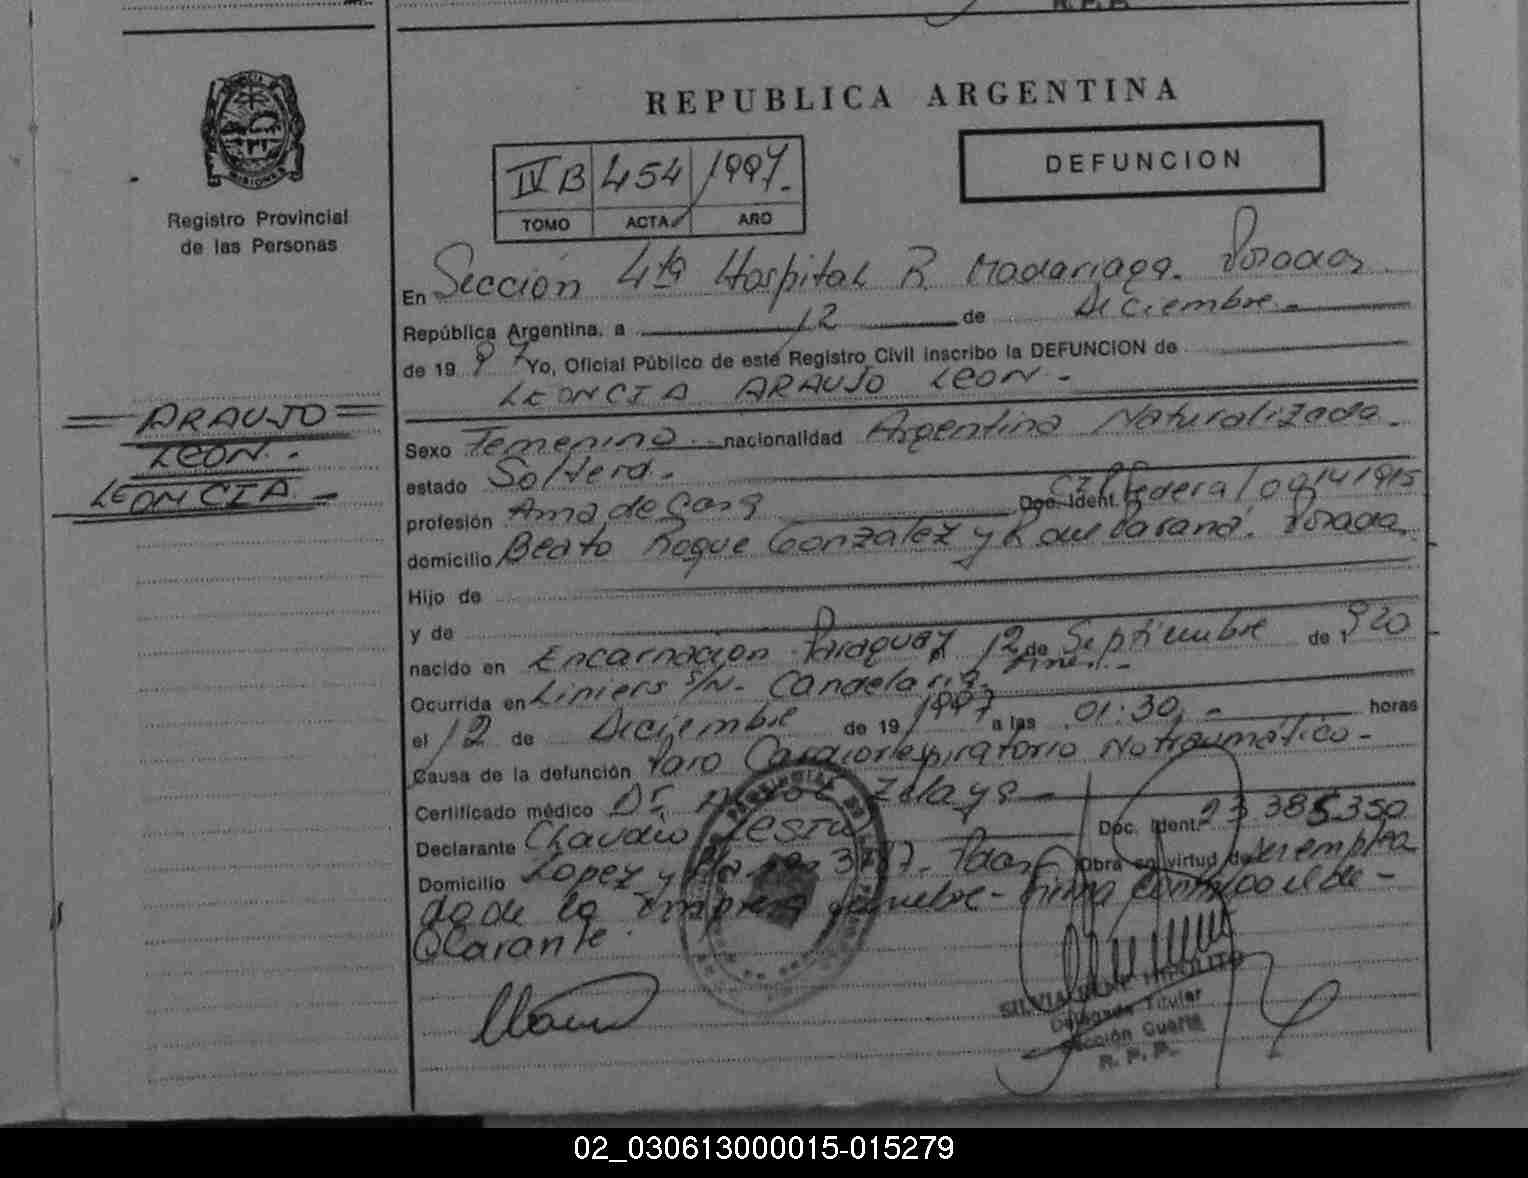 REPUBLICA ARGENTINA
IV B 454 1997.
TOMO ACTA AÑO
DEFUNCION
MISIONES
Registro Provincial
de las Personas
En Sección 4ta Hospital R. Madariaga. Posadas
República Argentina, a 12 de Diciembre.-
de 19 97 Yo, Oficial Público de este Registro Civil inscribo la DEFUNCION de
LEONCIA ARAUJO LEON.-
ARAUJO
LEON.-
LEONCIA.-
Sexo Femenino nacionalidad Argentina Naturalizada.
estado Soltera.-
profesión Ama de Casa Doc. Ident. Federal
domicilio Beato Roque Gonzalez y Paraná. Posadas
Hijo de
y de
nacido en Encarnacion Paraguay 12 de Septiembre de 1 920
Ocurrida en Liniers S/N- Candelaria
el 12 de Diciembre de 19 1997 a las 01:30.- horas
Causa de la defunción Paro Cardiorrespiratorio No traumático-
Certificado médico Dr. Zelaya
Declarante Claudio Doc. Ident. 23.385.350
Domicilio Lopez y Pdas Obra en virtud de ser emplea
do de la Empresa - Firma el de-
clarante.
SILVIA HIPOLITO
Delegada Titular
Sección Cuarta
R. P. P.
02_030613000015-015279